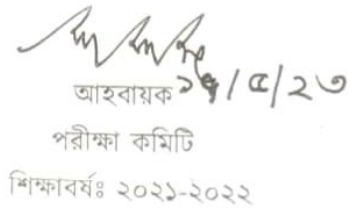 আহবায়ক ১৭/৫/২৩
পরীক্ষা কমিটি
শিক্ষাবর্ষঃ ২০২১-২০২২